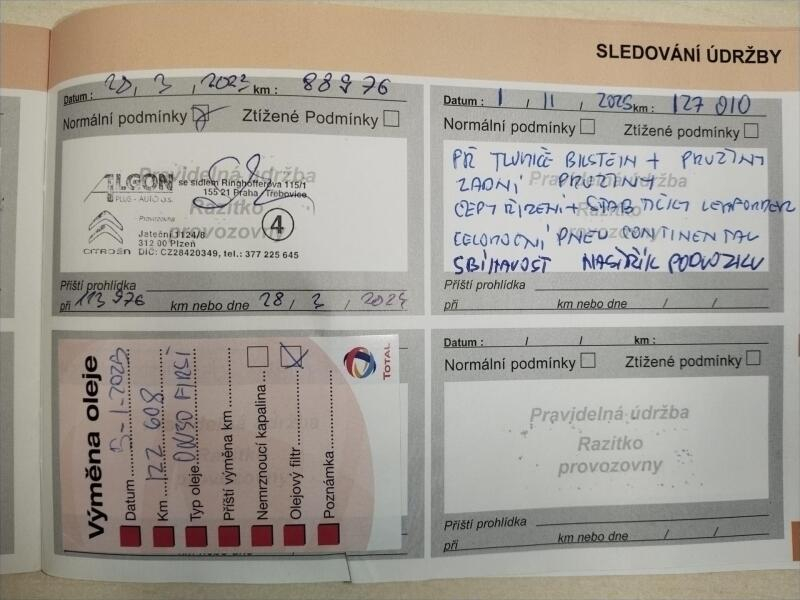 SLEDOVÁNÍ ÚDRŽBY
Datum : 28, 3, 2023 km : 88976
Normální podmínky Ztížené Podmínky
Pravidelná údržba
Razítko
provozovny
ALGON
PLUS - AUTO a.s.
se sídlem Ringhofferova 115/1
155 21 Praha, Třebovice
Provozovna
Jateční 1124/8
312 00 Plzeň
DIČ: CZ28420349, tel.: 377 225 645
CITROËN
4
Příští prohlídka
při 113976 km nebo dne 28, 3, 2024
Datum : 1 / 11 / 2025 km : 127 010
Normální podmínky Ztížené podmínky
PŘ TLUMIČE BILSTEIN + PRUŽINY
ZADNÍ PRUŽINY
ČEPY ŘÍZENÍ + STAB TIČKY LEMFORDER
CELOROČNÍ PNEU CONTINENTAL
SBÍHAVOST NÁSTŘIK PODVOZKU
Příští prohlídka
při km nebo dne / /
Výměna oleje
Datum 5-1-2025
Km 122 608
Typ oleje 0W30 FIRST
Příští výměna km
Nemrznoucí kapalina
Olejový filtr
Poznámka
TOTAL
km nebo dne / /
Datum : / / km :
Normální podmínky Ztížené podmínky
Pravidelná údržba
Razítko
provozovny
Příští prohlídka
při km nebo dne / /